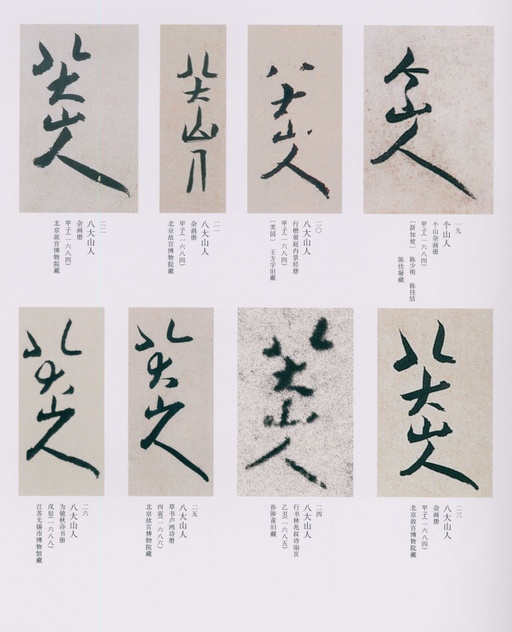 个山人
一九
个山人
个山杂画册
甲子(一六八四)
(新加坡) 陈少明 陈佳恬
陈佳凝藏
八大山人
二〇
八大山人
行楷黄庭内景经册
甲子(一六八四)
(美国) 王方宇旧藏
八大山人
二一
八大山人
杂画册
甲子(一六八四)
北京故宫博物院藏
八大山人
二二
八大山人
杂画册
甲子(一六八四)
北京故宫博物院藏
八大山人
二三
八大山人
杂画册
甲子(一六八四)
北京故宫博物院藏
八大山人
二四
八大山人
行书林兆叔诗扇页
乙丑(一六八五)
八大山人
二五
八大山人
草书卢鸿诗册
丙寅(一六八六)
北京故宫博物院藏
八大山人
二六
八大山人
为镜秋诗书册
戊辰(一六八八)
江苏无锡市博物馆藏